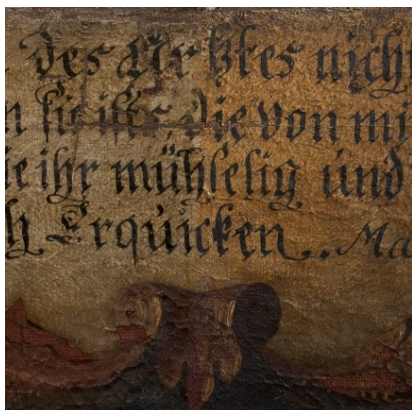 des Artztes nich
die von mi
ie ihr mühselig und
h Erquicken.. Ma